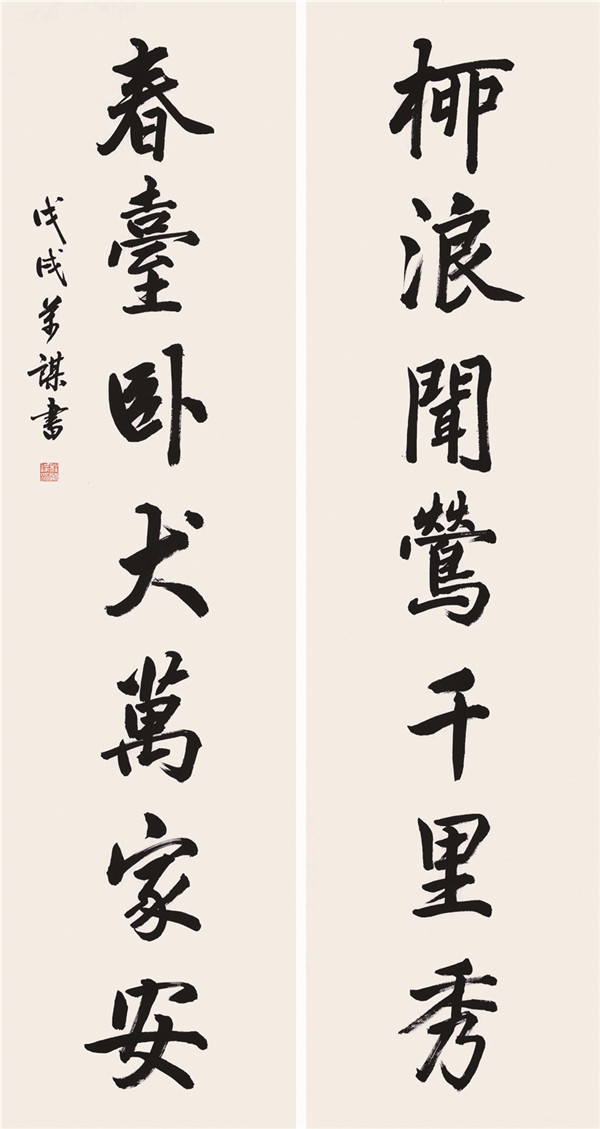 柳浪聞鶯千里秀
春臺卧犬萬家安
戊戌 謀書